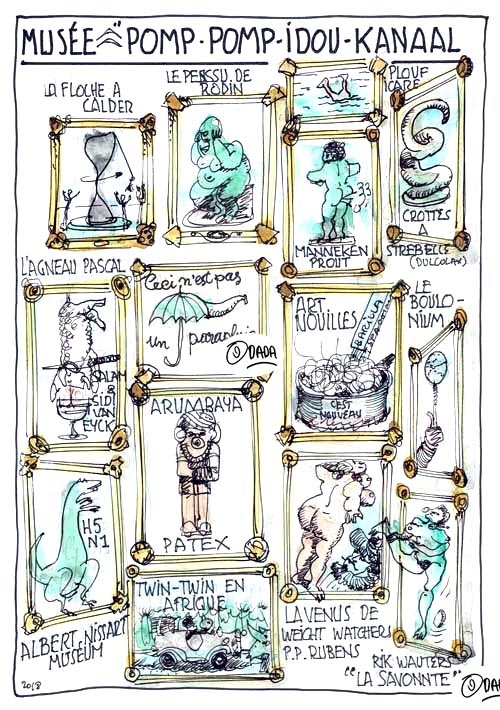 MUSÉE POMP-POMP-IDOU-KANAAL
LA FLOCHE A
CALDER
LE PENSU DE
RODIN
PLOUF
ICARE
33
MANNEKEN
PROUT
CROTTES
A
STREBELLE
(DULCOLAX)
L'AGNEAU PASCAL
ALAN
&
SIDI
VAN
EYCK
Ceci n'est pas
un parapluie
DADA
ART
NOUILLES
BARILLA
C'EST
NOUVEAU
LE
BOULO-
NIUM
ARUMBAYA
PATEX
H5
N1
ALBERT NISSART
MUSEUM
TWIN-TWIN EN
AFRIQUE
LA VENUS DE
WEIGHT WATCHERS
P.P. RUBENS
RIK WAUTERS
"LA SAVONNTE"
2018
DADA